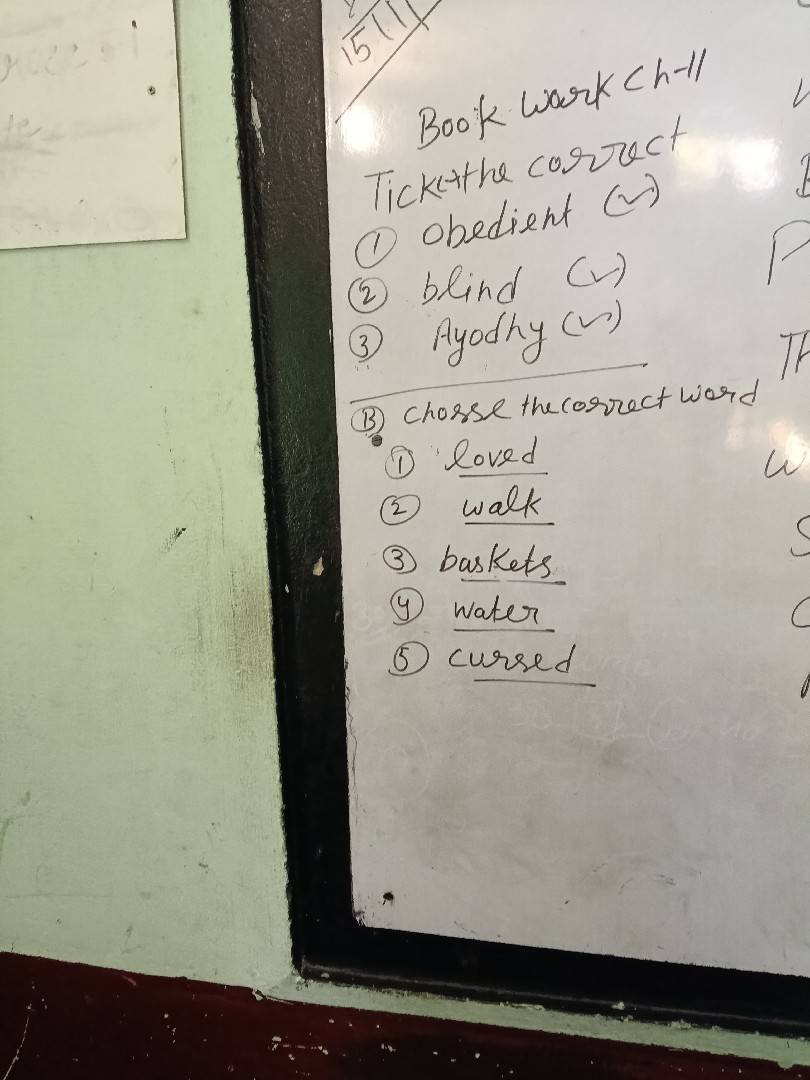 15/1/
Book Work Ch-11
Tick the correct
① Obedient (✓)
② blind (✓)
③ Ayodhy (✓)
Ⓑ Chosse the correct word
① loved
② walk
③ baskets
④ water
⑤ cursed